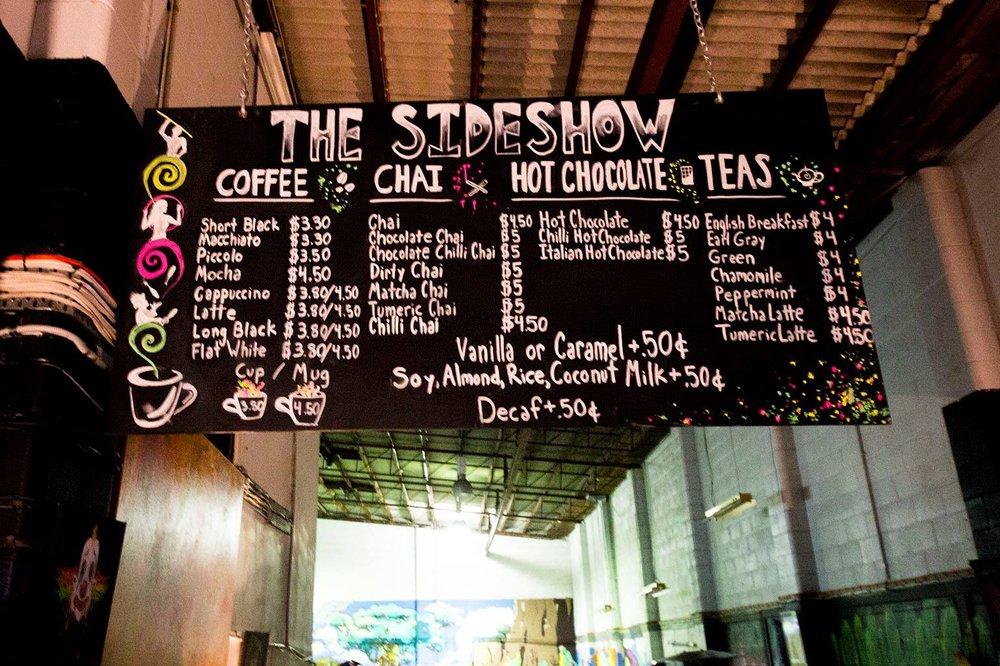 THE SIDESHOW
COFFEE
Short Black $3.30
Macchiato $3.30
Piccolo $3.50
Mocha $4.50
Cappuccino $3.80/4.50
Latte $3.80/4.50
Long Black $3.80/4.50
Flat White $3.80/4.50
Cup / Mug
3.80 4.50
CHAI
Chai $4.50
Chocolate Chai $5
Chocolate Chilli Chai $5
Dirty Chai $5
Matcha Chai $5
Tumeric Chai $5
Chilli Chai $4.50
HOT CHOCOLATE
Hot Chocolate $4.50
Chilli Hot Chocolate $5
Italian Hot Chocolate $5
TEAS
English Breakfast $4
Earl Gray $4
Green $4
Chamomile $4
Peppermint $4
Matcha Latte $4.50
Tumeric Latte $4.50
Vanilla or Caramel +.50¢
Soy, Almond, Rice, Coconut Milk +.50¢
Decaf +.50¢